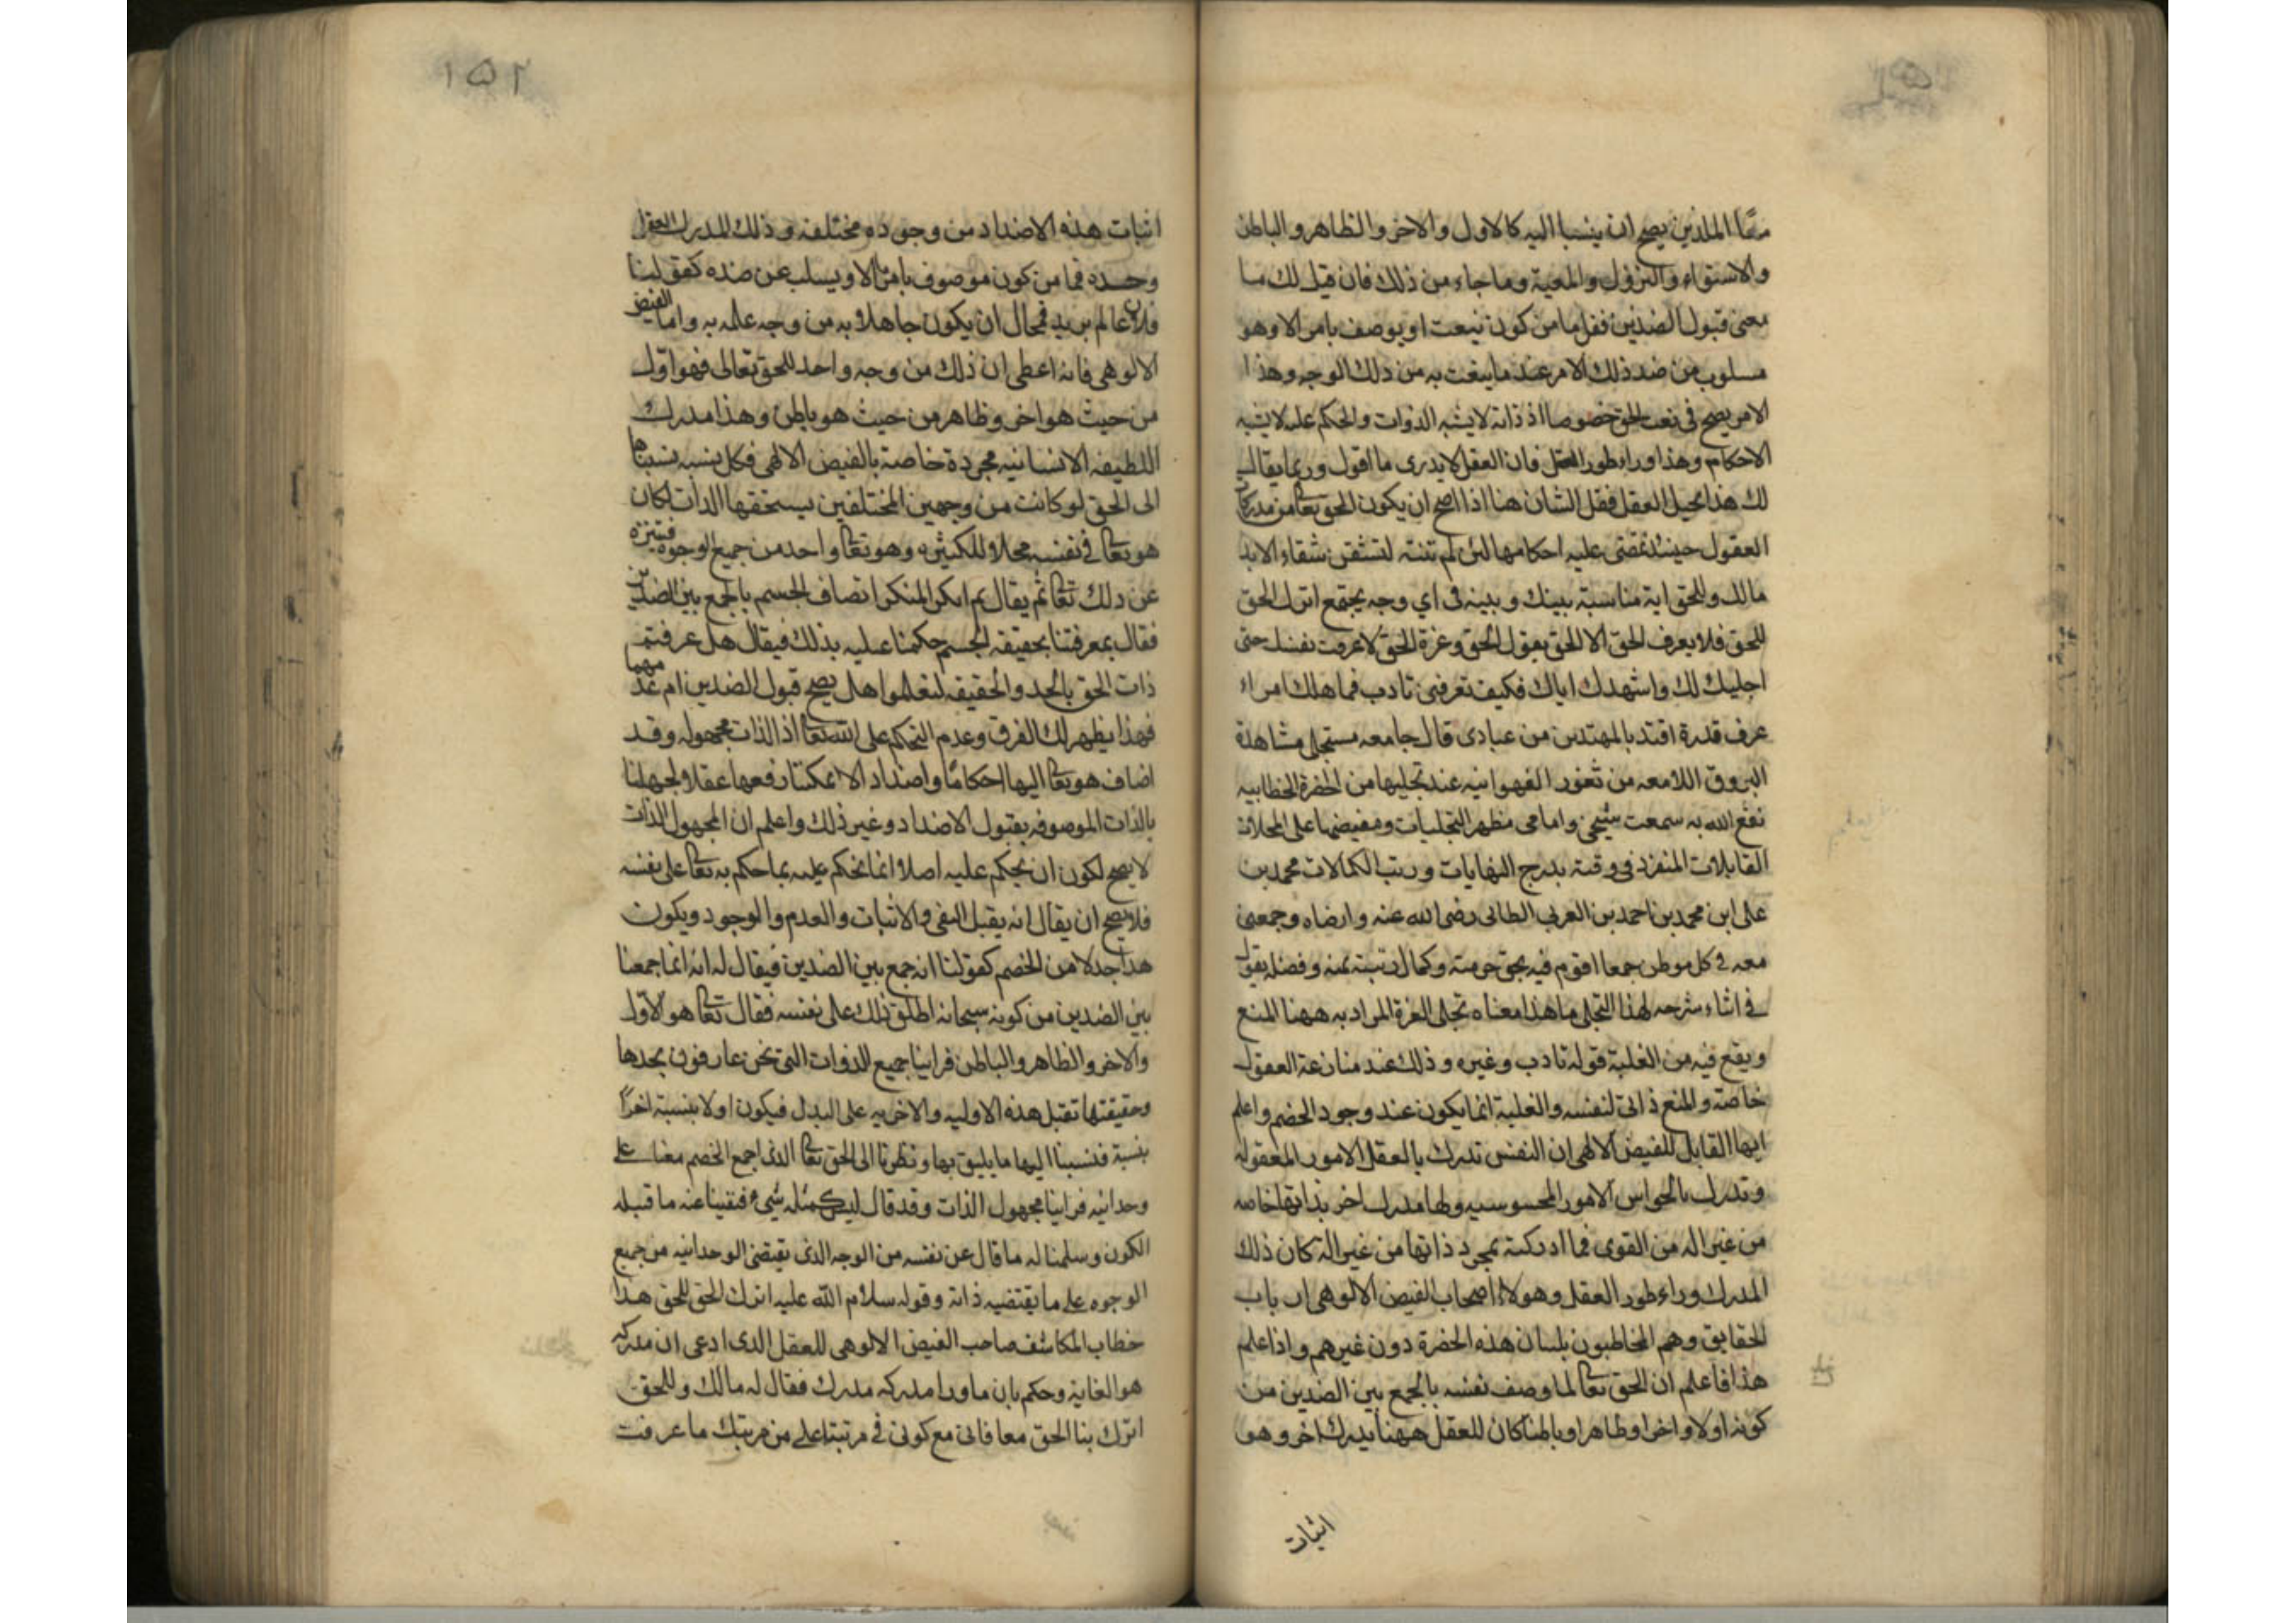 ممّا اللذين يصح ان ينسبا اليه كالاول والاخر والظاهر والباطن
والاستواء والنزول والمعية وما جاء من ذلك فان قيل لك ما
معنى قبول الضدين فقل ما من كون ينعت او يوصف بامر الا وهو
مسلوب من ضد ذلك الامر عند ما ينعت به من ذلك الوجه وهذا
الامر يصح في نعت الحق خصوصا اذ ذاته لا يشبه الذوات والحكم عليه لا يشبه
الاحكام وهذا وراء طور العقل فان العقل لا يدرى ما اقول وربما يقال
لك هذا يحيل العقل فقل الشان هنا اذا صح ان يكون الحق تعا من مدركات
العقول حينئذ تمضى عليه احكامها لئن لم تنته لتشقين شقاء الابد
مالك وللحق اية مناسبة بينك وبينه في اي وجه يجتمع اترك الحق
للحق فلا يعرف الحق الا الحق يقول الحق وعزة الحق لا عرفت نفسك حتى
اجليك لك واشهدك اياك فكيف تعرفنى تادب فما هلك امراء
عرف قدره اقتد بالمهتدين من عبادى قال جامعه مستجلى مشاهدة
البروق اللامعه من ثغور الفهوانيه عند تجليها من الحضرة الخطابيه
نفع الله به سمعت شيخى وامامى مظهر التجليات ومفيضها على المحلات
القابلات المنفرد في وقته بدرج النهايات ورتب الكمالات محمد بن
على ابن محمد بن احمد بن العربى الطائى رضى الله عنه وارضاه وجمعنى
معه في كل موطن جمعا اقوم فيه بحق حرمته وكمال رتبته بمنه وفضله يقول
في اثناء شرحه لهذا التجلى ما هذا معناه تجلى العزة المراد به ههنا المنع
ويقع فيه من الغلبة قوله تادب وغيره وذلك عند منازعة العقول
خاصة والمنع ذاتى لنفسه والغلبة انما يكون عند وجود الخصم واعلم
ايها القابل للفيض الالهى ان النفس تدرك بالعقل الامور المعقوله
وتدرك بالحواس الامور المحسوسيه ولها مدرك اخر بذاتها خاصه
من غير اله من القوى فما ادركته بمجرد ذاتها من غير الة كان ذلك
المدرك وراء طور العقل وهولاء اصحاب الفيض الالوهى ارباب
الحقايق وهم المخاطبون بلسان هذه الحضرة دون غيرهم واذا علم
هذا فاعلم ان الحق تعا لما وصف نفسه بالجمع بين الضدين من
كونه اولا واخرا وظاهرا وباطنا كان للعقل ههنا يدرك اخر وهو
اثبات
١٥٢
اثبات هذه الاضداد من وجوده مختلفه وذلك المدرك العقل
وحده فما من كون موصوف بامر ما الا ويسلب عن ضده كقولنا
فلان عالم بزيد فمحال ان يكون جاهلا به من وجه علمه به واما الفيض
الالوهى فانه اعطى ان ذلك من وجه واحد للحق تعالى فهو اوّل
من حيث هو اخر وظاهر من حيث هو باطن وهذا مدرك
اللطيفه الانسانيه مجردة خاصة بالفيض الالهى فكل نسبه نسبناها
الى الحق لو كانت من وجهين المختلفين يستحقها الذات لكان
هو تعا في نفسه محلا للكثيره وهو تعا واحد من جميع الوجوه فتنزه
عن ذلك تعا ثم يقال بم انكر المنكر اتصاف الجسم بالجمع بين الضدين
فقال بمعرفتنا بحقيقه الجسم حكمنا عليه بذلك فيقال هل عرفتم
ذات الحق بالحد والحقيقه لتعلموا هل يصح قبول الضدين ام عدمهما
فهذا يظهر لك الفرق وعدم التحكم على الله تعا اذ الذات مجهوله وقد
اضاف هو تعا اليها احكاما واضداد الا يمكننا رفعها عقلا لجهلنا
بالذات الموصوفه بقبول الاضداد وغير ذلك واعلم ان المجهول الذات
لا يصح لكون ان يحكم عليه اصلا انما نحكم عليه بما حكم به تعا على نفسه
فلا يصح ان يقال انه يقبل النفى والاثبات والعدم والوجود ويكون
هذا جدلا من الخصم كقولنا انه جمع بين الضدين فيقال له انه انما جمعنا
بين الضدين من كونه سبحانه اطلق ذلك على نفسه فقال تعا هو الاوّل
والاخر والظاهر والباطن فراينا جميع الذوات التى نحن عارفون بحدها
وحقيقتها تقبل هذه الاوليه والاخريه على البدل فيكون اولا بنسبة اخراً
بنسبة فنسبنا اليها ما يليق بها ونظرنا الى الحق تعا الذى اجمع الخصم معنا على
وحدانيه فراينا مجهول الذات وقد قال ليس كمثله شىء فنفينا عنه ما قبله
الكون وسلمنا له ما قال عن نفسه من الوجه الذى يقتضى الوحدانيه من جميع
الوجوه على ما يقتضيه ذاته وقوله سلام الله عليه اترك الحق للحق هذا
خطاب المكاشف صاحب الفيض الالوهى للعقل الذى ادعى ان مدركه
هو الغاية وحكم بان ما ورا مدركه مدرك فقال له مالك وللحق
اترك بنا الحق معا فانى مع كونى في مرتبة اعلى من مرتبتك ما عرفت